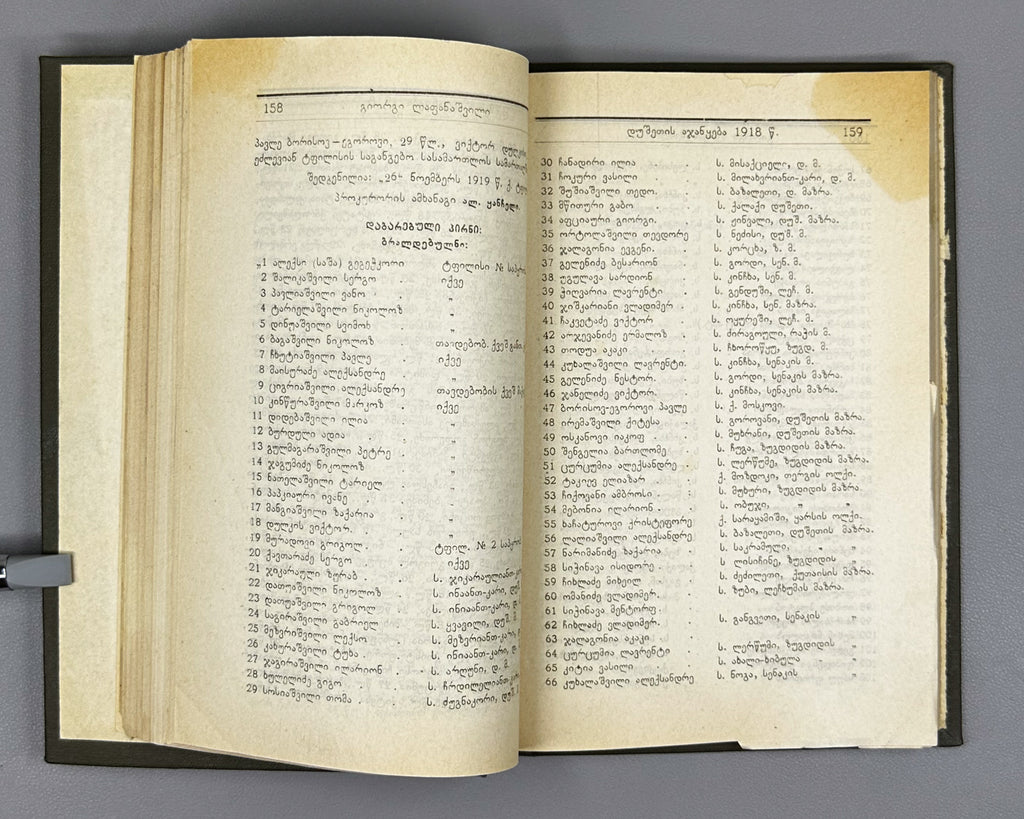 158 გიორგი ლაფანაშვილი
პავლე ბორისოვ—ეგოროვი, 29 წლ., ვიქტორ
ეძლევიან ტფილისის საგანგებო სასამართლოს
შედგენილია: „26“ ნოემბერს 1919 წ. ქ.
პროკურორის ამხანაგი ალ. ყანჩელი.
დაბარებული პირნი:
ბრალდებულნი:
„1 ალექსი (საშა) გეგეჭკორი ტფილისი №
2 შალიკაშვილი სერგო . იქვე
3 პავლიაშვილი ვანო . „
4 ტარიელაშვილი ნიკოლოზ „
5 დინუაშვილი სვიმონ . „
6 ბაგაშვილი ნიკოლოზ თავდებობ. ქვეშ
7 ჩხუტიაშვილი პავლე . იქვე
8 მაისურაძე ალექსანდრე . „
9 ციგრიაშვილი ალექსანდრე თავდებობის ქვეშ
10 კინწურაშვილი მარკოზ . იქვე
11 დიდებაშვილი ილია . „
12 ბურდული ადია . „
13 გულმაგარაშვილი პეტრე . „
14 ჯაგუმიძე ნიკოლოზ „
15 ნათელაშვილი ტარიელ . „
16 პაპკიაური ივანე . „
17 მანგიაშვილი ზაქარია . „
18 დულკის ვიქტორ. „
19 მურადოვი გრიგოლ . ტფილ. № 2
20 ქავთარაძე სერგო . იქვე
21 ჯიკარაული ზურაბ . . ს. ჯიკარაულიანთ-
22 დათუაშვილი ნიკოლოზ . ს. ინიანთ-კარი,
23 დათუაშვილი გრიგოლ . ს. ინიიანთ-კარი, დ.
24 საგირაშვილი გაბრიელ . ს. ყვავილი, დუშ.
25 მეზვრიშვილი ლექსო . ს. მეზვრიანთ-კარი,
26 კახურაშვილი ტუხა . ს. ინიიანთ-კარი, დ.
27 ჯაგირაშვილი ილარიონ . ს. არღუნი, დ. მ.
28 ხულელიძე გიგო . . ს. ჩრდილელიანთ-
29 სოსიაშვილი თომა . . ს. ძუგნაკორი, დუშ.
დუშეთის აჯანყება 1918 წ. 159
30 ჩანადირი ილია . ს. მისაქციელი, დ. მ.
31 ჩოკური ვასილი . ს. მილახვრიანთ-კარი, დ. მ.
32 შუშიაშვილი თედო. . ს. ბაზალეთი, დ. მაზრა.
33 მწითური გაბო . . ს. ქალაქი დუშეთი.
34 აფციაური გიორგი. . ს. ჟინვალი, დუშ. მაზრა.
35 ორტოლაშვილი თევდორე ს. ნედისი, დუშ. მ.
36 ჯალაგონია ევგენი. . ს. კორცხა, ზ. მ.
37 გელენიძე ბესარიონ . ს. გორდი, სენ. მ.
38 უგულავა სარდიონ . ს. კინჩხა, სენ. მ.
39 ჭიღვარია ლავრენტი . ს. გენდუში, ლეჩ. მ.
40 ჯიშკარიანი ვლადიმერ . ს. კინჩხა, სენ. მაზრა.
41 ჩაკვეტაძე ვიქტორ . ს. ოყურეში, ლეჩ. მ.
42 არჯევანიძე ერმალოზ . ს. ძირაგოული, რაჭის მ.
43 თოდუა აკაკი . . ს. ჩხოროწყუ, ზუგდ. მ.
44 კუხალაშვილი ლავრენტი. ს. კინჩხა, სენაკის მ.
45 გელენიძე ნესტორ. . ს. გორდი, სენაკის მაზრა.
46 ჯანელიძე ვიქტორ. . ს. კინჩხა, სენაკის მაზრა.
47 ბორისოვ-ეგოროვი პავლე ს. ქ. მოსკოვი.
48 ირემაშვილი ქიტესა . ს. გოროვანი, დუშეთის მაზრა.
49 ოსკანოვი იაკოფ . . ს. მუხრანი, დუშეთის მაზრა.
50 შენგელია ბართლომე . ს. ჩუგა, ზუგდიდის მაზრა.
51 ცურცუმია ალექსანდრე . ს. ლერწუმე, ზუგდიდის მაზრა.
52 ტაკიევ ელიაზარ . ქ. მოზდოკი, თერგის ოლქი.
53 ჩიქოვანი ამბროსი . . ს. მუხური, ზუგდიდის მაზრა.
54 მებონია ილარიონ . . ს. ობუჯი, „ „
55 ხაჩატუროვი კრისტეფორე ქ. სარაყამიში, ყარსის ოლქი.
56 ლალიაშვილი ალექსანდრე ს. ბაზალეთი, დუშეთის მაზრა.
57 ნარიმანიძე ზაქარია . ს. საკრამული, „
58 სიჭინავა ისიდორე . . ს. ლისიჩინე, ზუგდიდის „
59 ჩიხლაძე მიხეილ . ს. ძეძილეთი, ქუთაისის მაზრა.
60 ომანიძე ვლადიმერ. . ს. ზუბი, ლეჩხუმის მაზრა.
61 სიჭინავა მენტორფ. .
62 ჩიხლაძე ვლადიმერ. . ს. განგვეთი, სენაკის „
63 ჯალაგონია აკაკი .
64 ცურცუმია ლავრენტი . ს. ლერწუმი, ზუგდიდის „
65 კიტია ვასილი . . ს. ახალი-ხიბულა „
66 კუხალაშვილი ალექსანდრე ს. ნოგა, სენაკის „